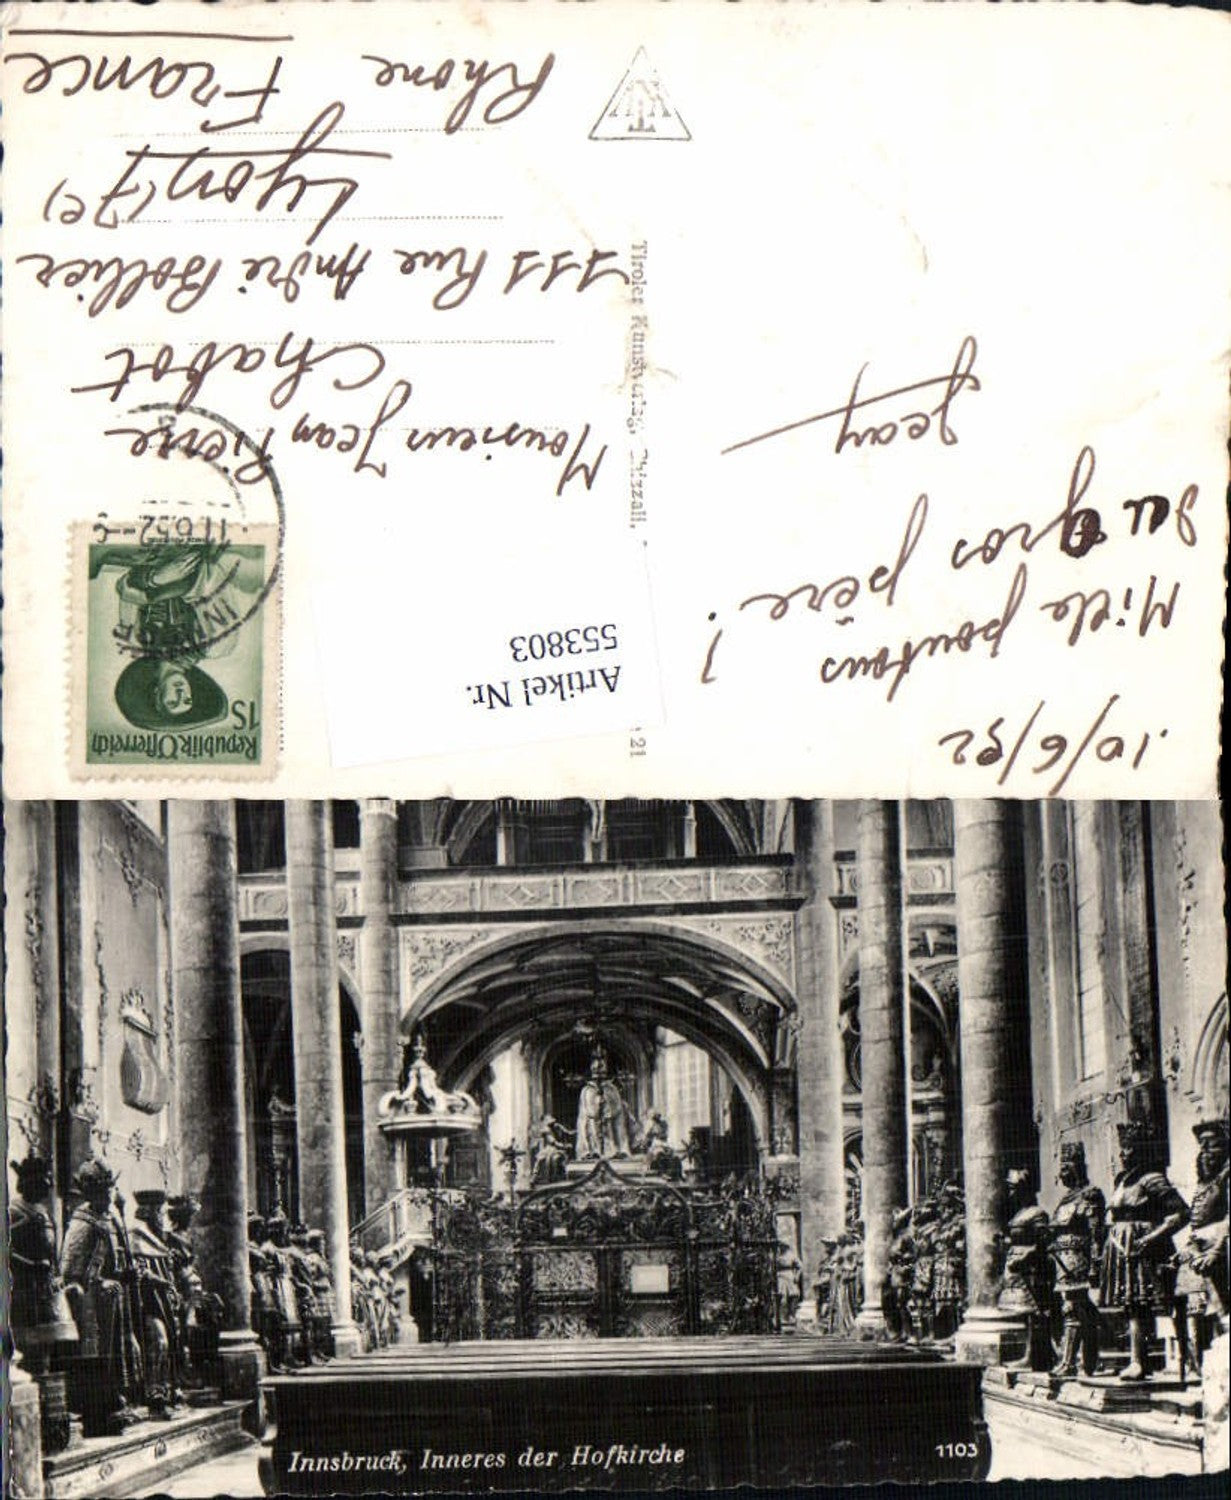 10/6/52
Mille poutous
du gros père !
Jean
Tiroler Kunstverlag,
121
TKV
Artikel Nr.
553803
Republik Österreich
1S
11.6.52-
Monsieur Jean Pierre
Chabot
111 Rue André Bollier
Lyon (7e)
Rhone France
Innsbruck, Inneres der Hofkirche
1103